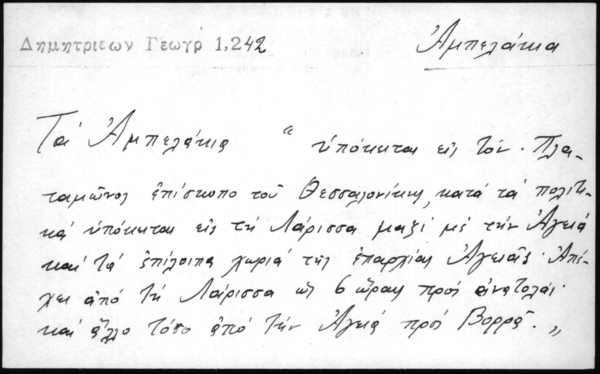 Δημητριεων Γεωγρ 1,242
Ἀμπελάκια
Τά Ἀμπελάκια " ὑπόκεται εἰς τόν Πλα-
ταμῶνος ἐπίσκοπο τοῦ Θεσσαλονίκης, κατά τά πολιτι-
κά ὑπόκεται εἰς τή Λάρισσα μαζί μέ τήν Ἀγειά
καί τά ἐπίλοιπα χωριά τῆς ἐπαρχίας Ἀγειᾶς. Ἀπέ-
χει ἀπό τή Λάρισσα ὡς 6 ὧραις πρός ἀνατολάς
καί ἄλλο τόσο ἀπό τήν Ἀγειά πρός Βορρᾶ. "